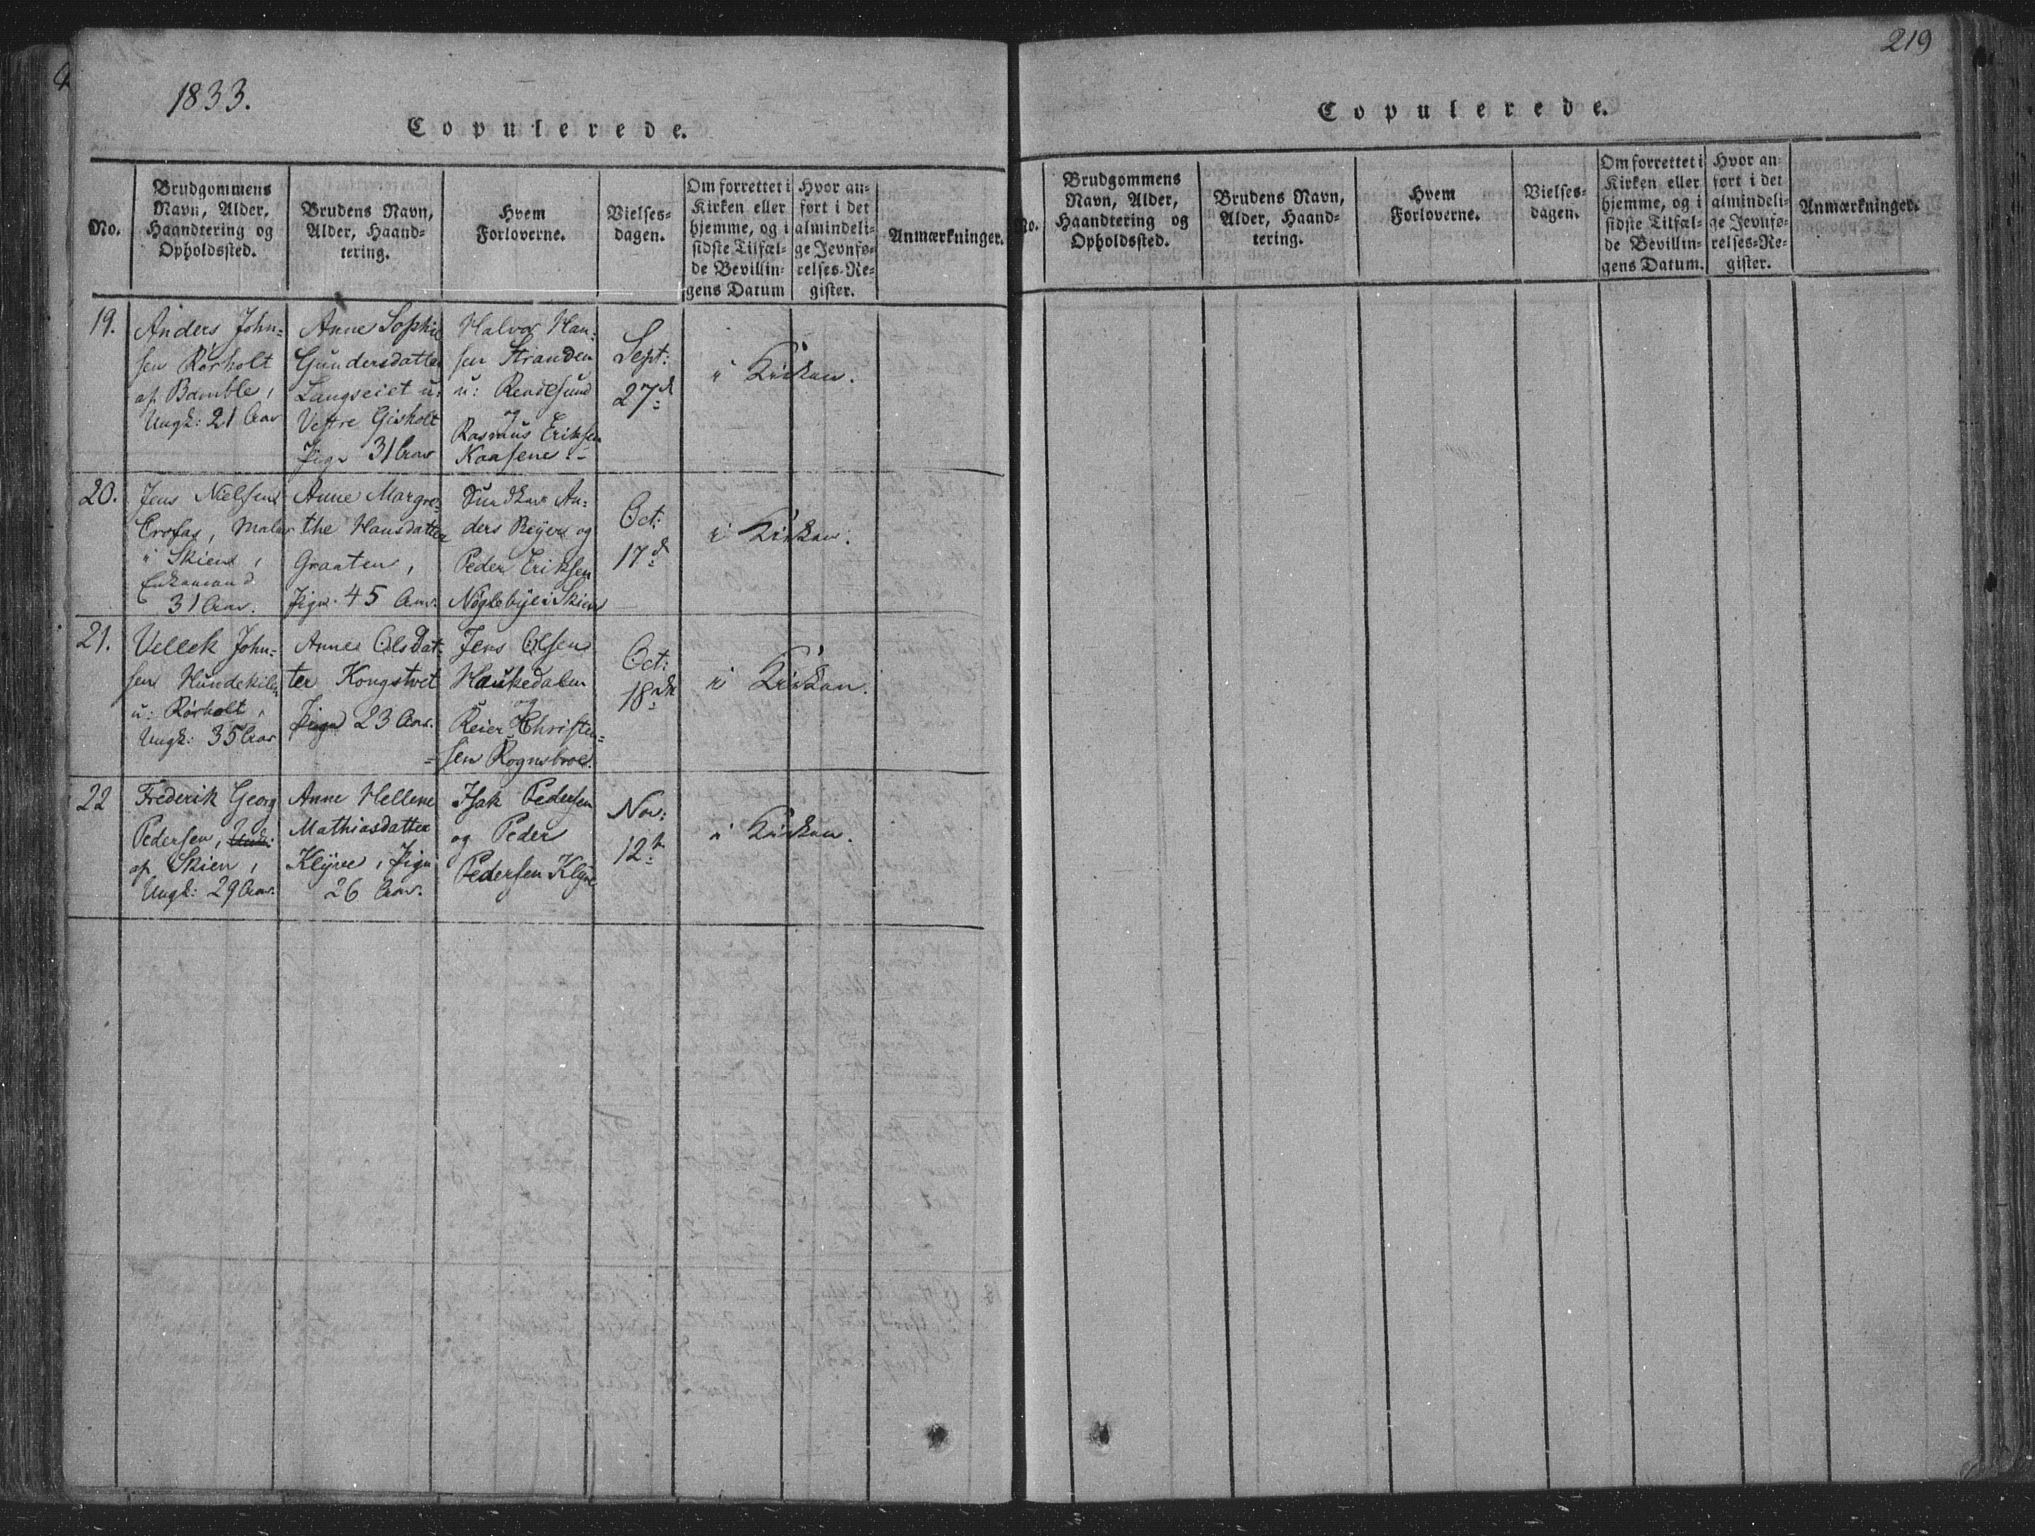 1833.
Copulerede.
No.
Brudgommens
Navn, Alder,
Haandtering og
Opholdssted.
Brudens Navn,
Alder, Haand-
tering.
Hvem
Forloverne.
Vielses-
dagen.
Om forrettet i
Kirken eller
hjemme, og i
sidste Tilfæl-
de Bevillin-
gens Datum
Hvor an-
ført i det
almindeli-
ge Jevnfø-
relses-Re-
gister.
Anmærkninger.
19.
Anders John-
sen Rørholt
af Bamble,
Ungk: 21 Aar
Anne Sophie
Gundersdatter
Langseiet u:
Vestre Gisholt
Pige 31 Aar
Halvor Han-
sen Stranden
u: Rendesund
og
Rasmus Eriksen
Kaasene.
Sept:
27d
i Kirken.
20.
Jens Nielsen
Crofas, Maler
i Skien,
Enkemand
31 Aar.
Anne Margre-
the Hansdatter
Graaten,
Pige 45 Aar.
An-
ders Reyer og
Peder Eriksen
Nøglebye i Skien
Oct:
17d
i Kirken.
21.
Vellek John-
sen Hundekilen
u: Rørholt,
Ungk: 35 Aar
Anne Olsdat-
ter Kongstvet
Pige 23 Aar.
Jens Olsen
Haukedalen
og
Reier Christen-
sen Rognsbroe.
Oct:
18de
i Kirken.
22
Frederik Georg
Pedersen,
af Skien,
Ungk: 29 Aar.
Anne Hellene
Mathiasdatter
Klyve, Pige
26 Aar.
Isak Pedersen
og Peder
Pedersen Klyve
Nov:
12t
i Kirken.
219
Copulerede.
No.
Brudgommens
Navn, Alder,
Haandtering og
Opholdssted.
Brudens Navn,
Alder, Haand-
tering.
Hvem
Forloverne.
Vielses-
dagen.
Om forrettet i
Kirken eller
hjemme, og i
sidste Tilfæl-
de Bevillin-
gens Datum.
Hvor an-
ført i det
almindeli-
ge Jevnfø-
relses-Re-
gister.
Anmærkninger.